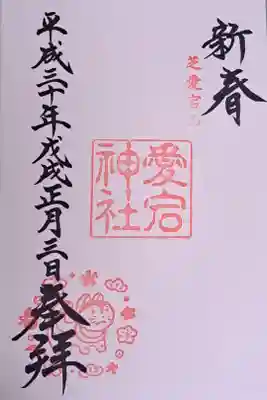 新春
芝愛宕山
愛宕
神社
平成三十年戊戌正月三日
奉拝